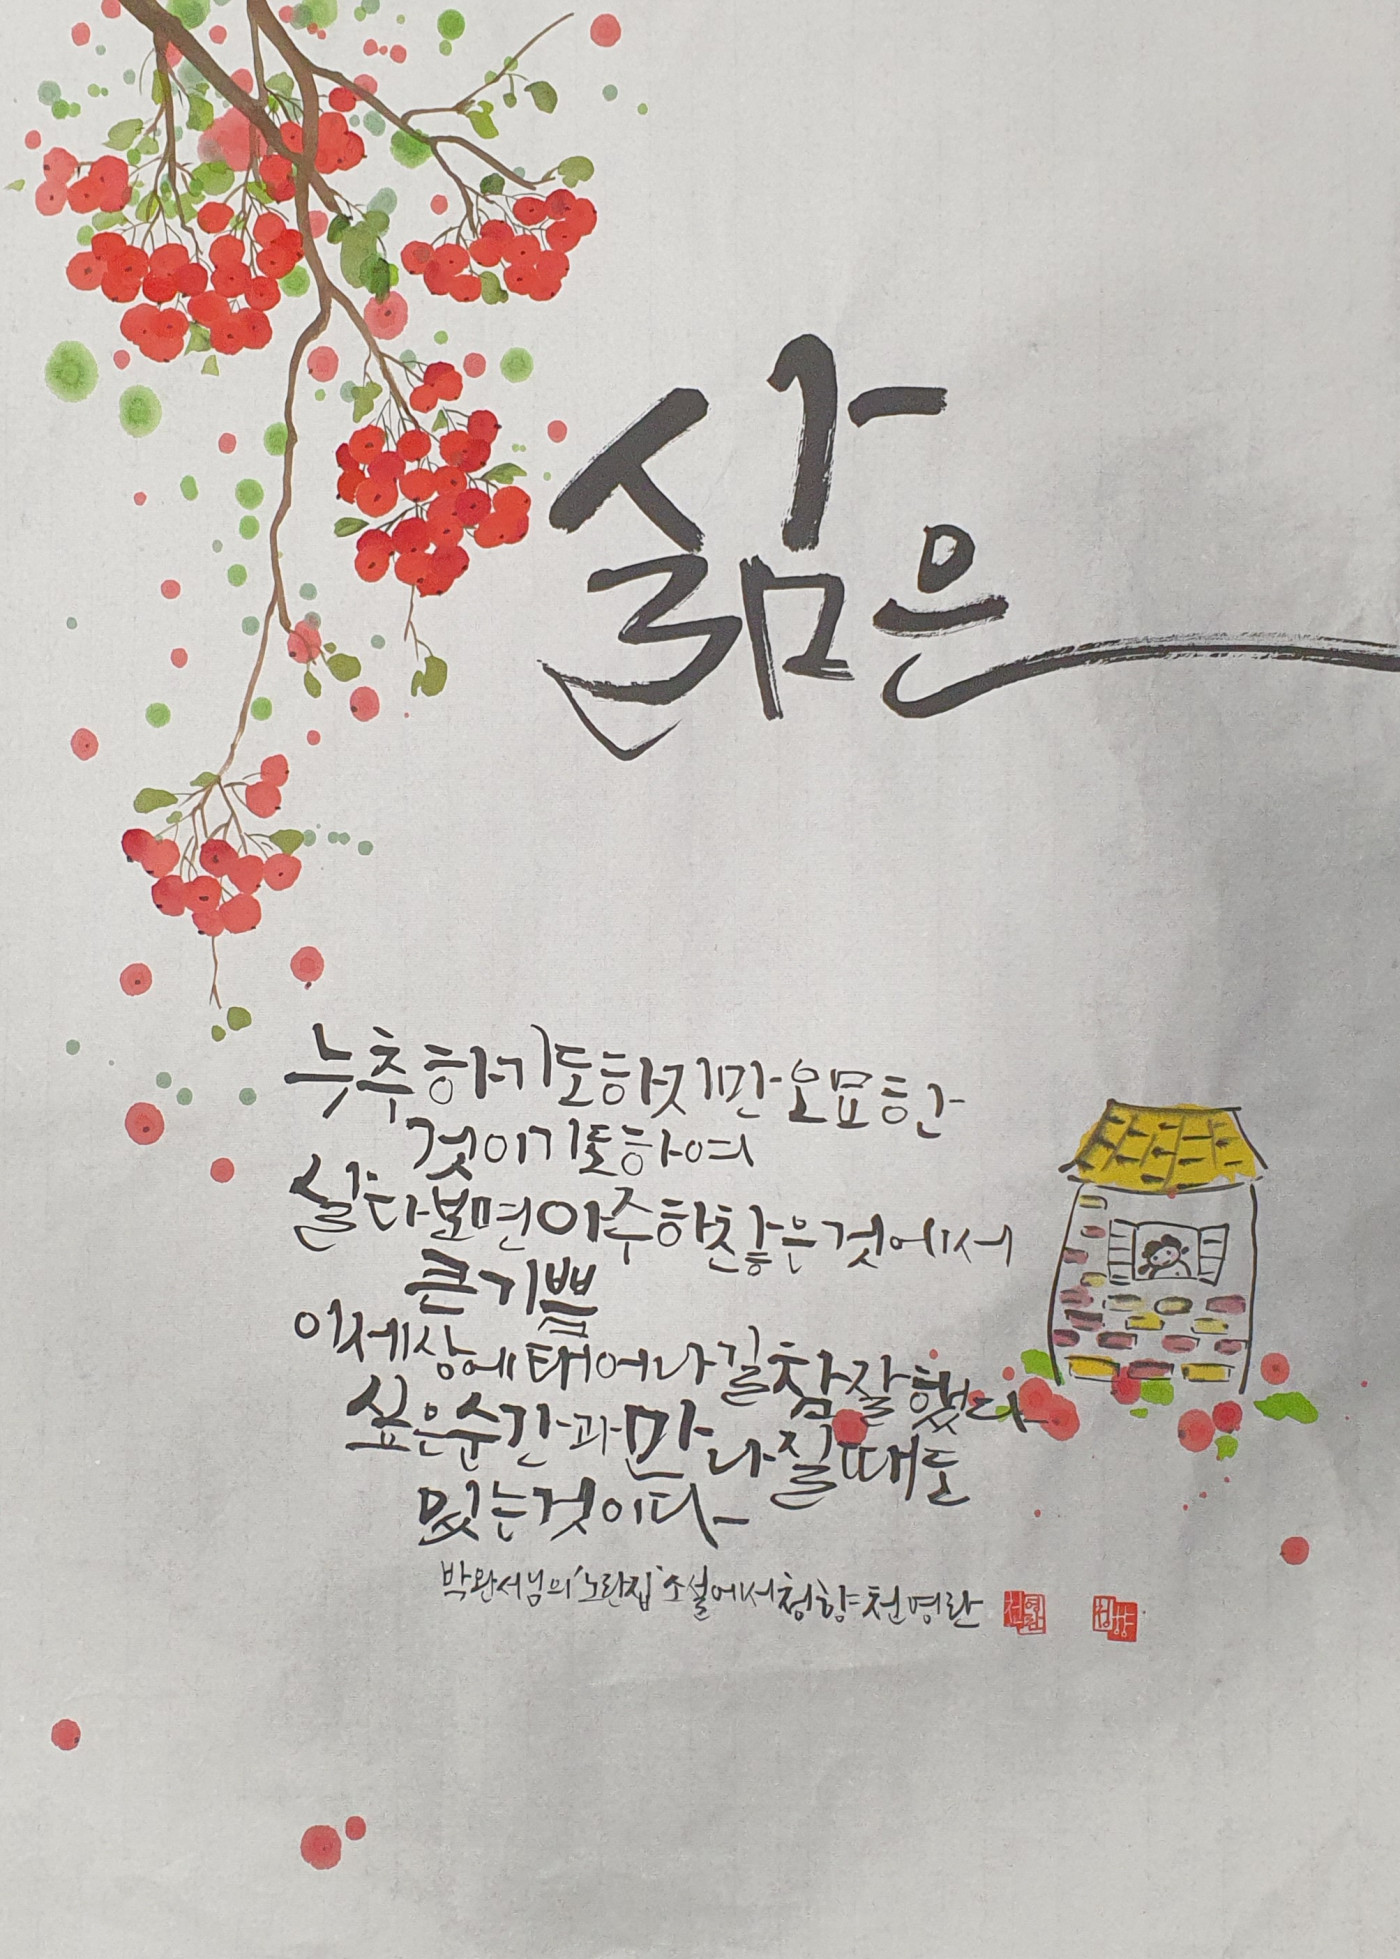 삶은
누추하기도하지만오묘한
것이기도하여
살다보면아주하찮은것에서
큰기쁨
이세상에태어나길참잘했다
싶은순간과만나질때도
있는것이다
박완서님의'노란집'소설에서청향천영란
천영란
청향